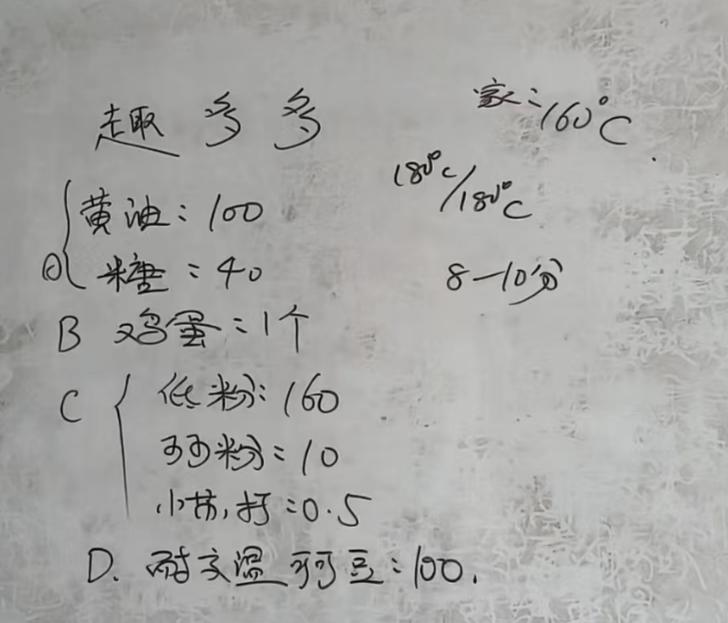 趣多多
家:160°C
180°C/180°C
8-10分
黄油:100
糖:40
B 鸡蛋:1个
C
低粉:160
可可粉:10
小苏打:0.5
D. 耐高温可可豆:100.